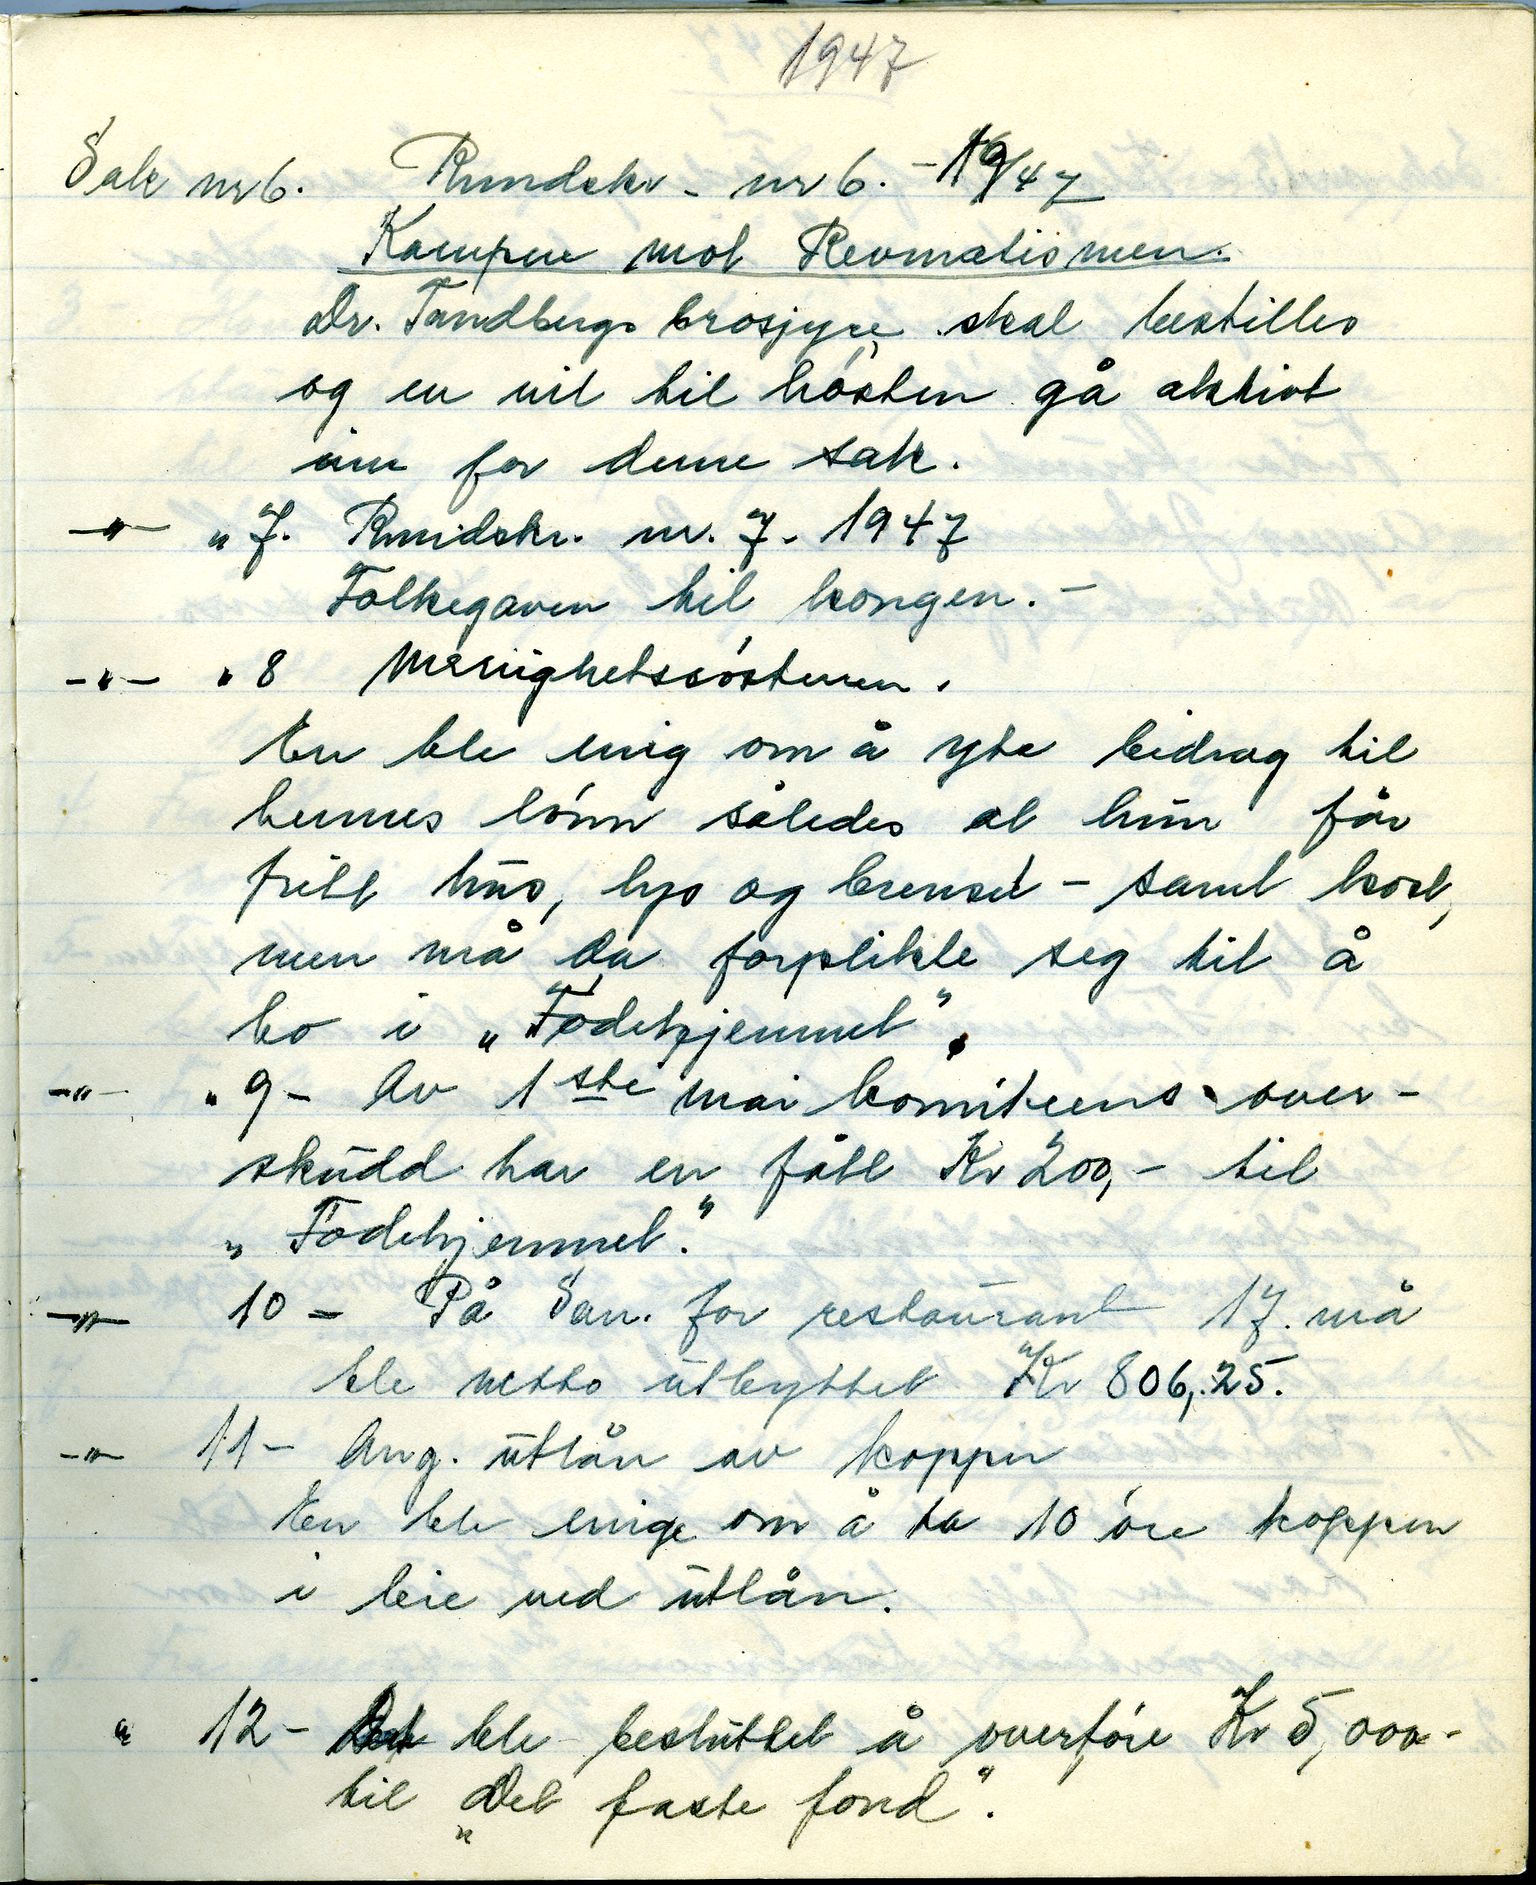 1947
Sak nr 6. Rundskr - nr 6. - 19/47
Kampen mot Revmatismen.
Dr. Tandbergs brosjyre skal bestilles
og en vil til høsten gå aktivt
inn for denne sak.
-"- " 7. Rundskr. nr. 7. 1947
Folkegaven til kongen. -
-"- " 8 Menighetssøsteren.
En ble enig om å yte bidrag til
hennes lønn således at hun får
fritt hus, lys og brensel - samt kost,
men må da forplikte seg til å
bo i „Fødehjemmet".
-"- " 9 - Av 1ste mai komiteens over-
skudd har en fått Kr 200,- til
„Fødehjemmet."
-"- 10 - På San. for restaurant 17. mai
ble netto utbyttet Kr 806,25.
-"- 11 - Ang. utlån av kopper
En ble enige om å ta 10 øre koppen
i leie ved utlån.
" 12 - Det ble besluttet å overføre Kr 5,000-
til „Det faste fond".